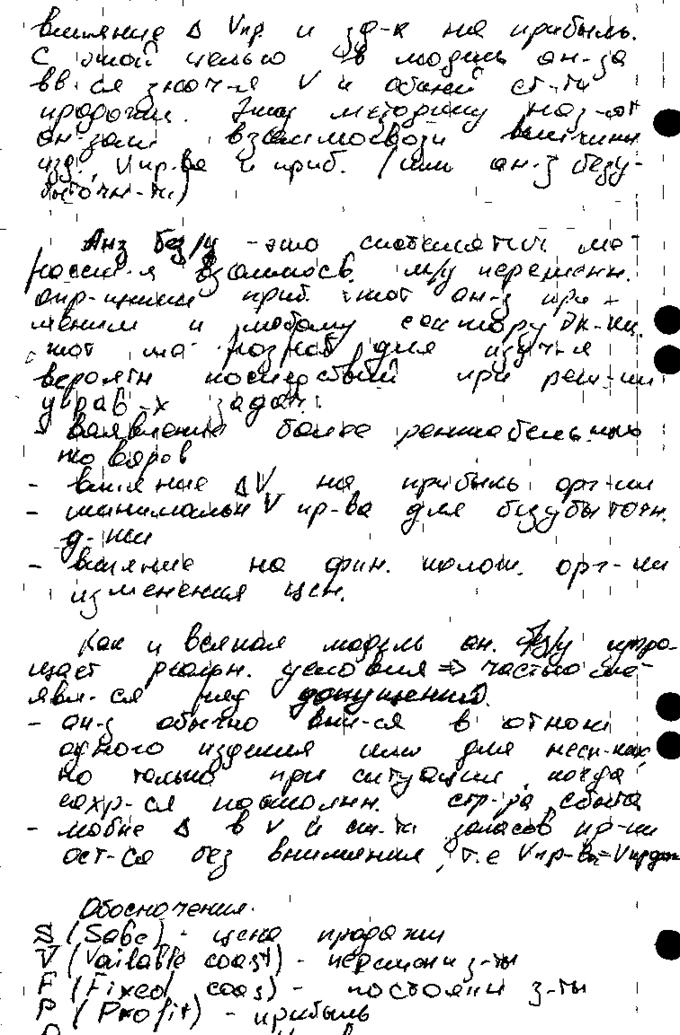 влияние Δ Vпр. и зд-к на прибыль.
С этой целью в модель ан-за
вв-ся знач-я V и общей ст-ти
продаж. Эту методику наз-ют
ан-зом взаимосвязи величины
изд. Vпр-ва и приб. (или ан-з безу-
быточн-ти)
Анз без/у - это систематич
взаимосв. м/у переменн.
опр-щими приб. этот ан-з при-
меним к любому сектору эк-ки.
для изуч-я
вероятн последствий при реш-ии
управ-х задач:
- выявление более рентабельных
товаров
- влияние ΔV на прибыль орг-ии
- минимальн V пр-ва для безубыточн.
д-ти
- влияние на фин. полож. орг-ии
изменения цен.
Как и всякая модель ан. без/у упро-
щает реальн. условия => частью его
явл-ся ряд допущений.
- ан-з обычно вып-ся в отнош
одного изделия или для неск-ких,
но только при ситуации, когда
сохр-ся постоянн. стр-ра сбыта
- любые Δ в V и ст-ти запасов пр-ии
ост-ся без внимания, т.е Vпр-ва=Vпродаж
Обозначения.
S (Sabe) - цена продажи
V (Vailable coast) - переменн з-ты
F (Fixed coas) - постоянн з-ты
P (Profit) - прибыль